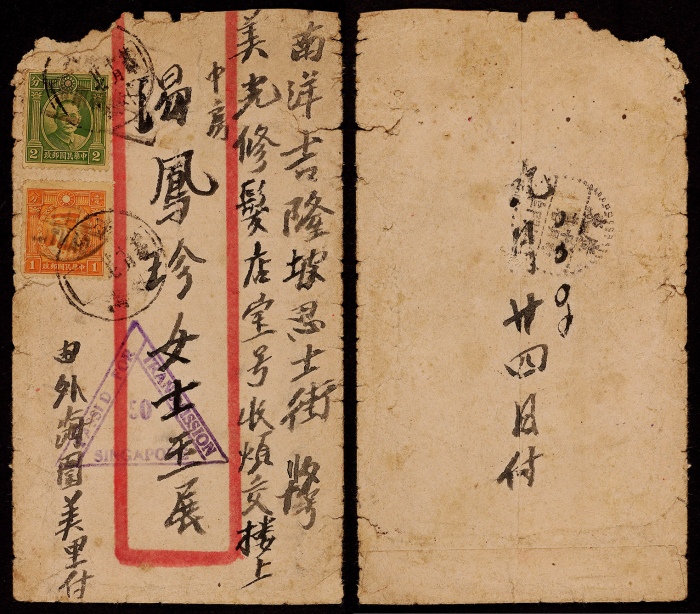 南洋吉隆坡忍士街
美光修髮店宝号收煩交樓上
鳳珍女士玉展
由外海圓美里付
分
2
政郵國民華中
分
1
政郵國民華中
FOR TRANSMISSION
SINGAPORE
九月廿四日付